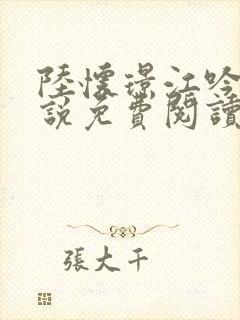 陸懷璟江吟
說免費閱讀
張大千